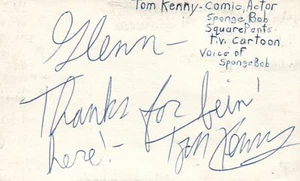 Tom Kenny-Comic, Actor
Sponge Bob
SquarePants
T.V. Cartoon
Voice of
SpongeBob
Glenn-
Thanks for bein'
here!-
Tom Kenny